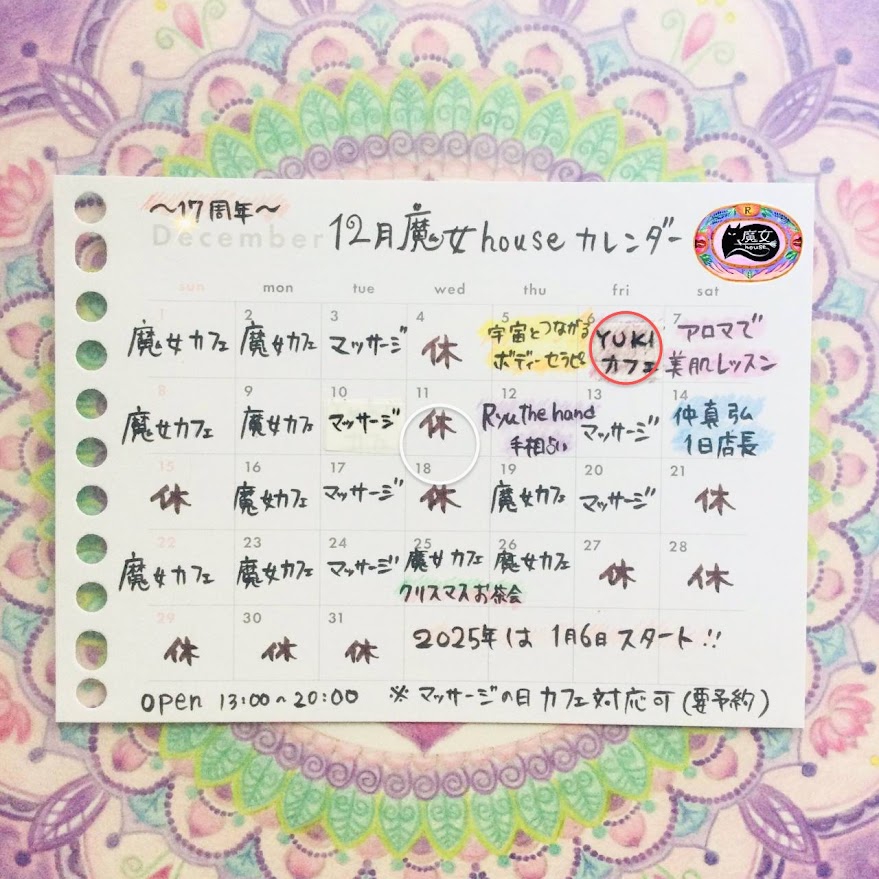 〜17周年〜
December
12月魔女houseカレンダー
魔女
house
sun mon tue wed thu fri sat
1 2 3 4 5 6 7
魔女カフェ 魔女カフェ マッサージ 休 宇宙とつながる YUKI アロマで
ボディーセラピ カフェ 美肌レッスン
8 9 10 11 12 13 14
魔女カフェ 魔女カフェ マッサージ 休 Ryu the hand マッサージ 仲真弘
手相占い 1日店長
15 16 17 18 19 20 21
休 魔女カフェ マッサージ 休 魔女カフェ マッサージ 休
22 23 24 25 26 27 28
魔女カフェ 魔女カフェ マッサージ 魔女カフェ 魔女カフェ 休 休
クリスマスお茶会
29 30 31
休 休 休 2025年は 1月6日スタート!!
open 13:00~20:00 ※マッサージの日カフェ対応可(要予約)